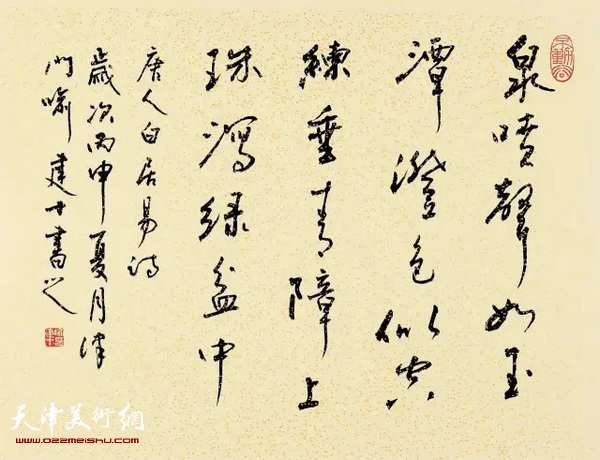 泉噴聲如玉
潭澄色似空
練垂青障上
珠瀉绿盆中
唐人白居易诗
歲次丙申夏月津
门喻建十書之
天津美術網
www.022meishu.com